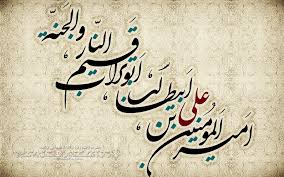 امیر المومنین علی بن ابیطالب ابوتراب قسیم النار والجنة